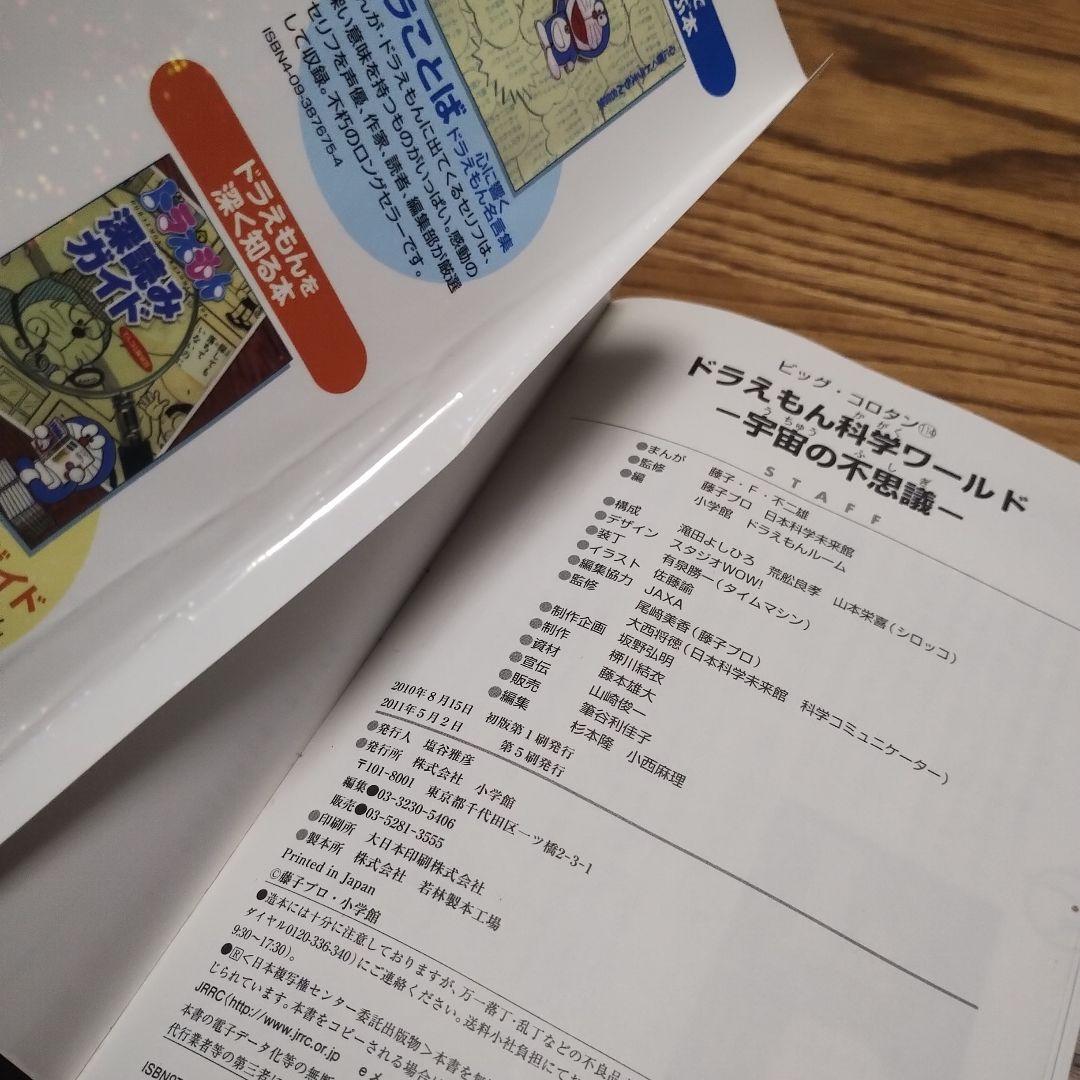 ぶ本
うことば
心に響く
ドラえもん名言集
んが・ドラえもんに出てくるセリフは、
深い意味を持つものがいっぱい。感動の
セリフを声優、作家、読者、編集部が厳選
して収録。不朽のロングセラーです。
ISBN4-09-387675-4
ドラえもんを
深く知る本
ドラえもん
深読み
ガイド
イド
ビッグ・コロタン
ドラえもん科学ワールド
かがく
ー宇宙の不思議ー
うちゅう ふしぎ
STAFF
●まんが 藤子・F・不二雄
●監修 藤子プロ 日本科学未来館
●編 小学館 ドラえもんルーム
●構成 滝田よしひろ 荒舩良孝 山本栄喜(シロッコ)
●デザイン スタジオWOW!
●装丁 有泉勝一(タイムマシン)
●イラスト 佐藤諭
●編集協力 JAXA
●監修 尾﨑美香(藤子プロ)
大西将徳(日本科学未来館 科学コミュニケーター)
●制作企画 坂野弘明
●制作 栁川結衣
●資材 藤本雄大
●宣伝 山崎俊一
●販売 筆谷利佳子
●編集 杉本隆 小西麻理
2010年8月15日 初版第1刷発行
2011年5月2日 第5刷発行
●発行人 塩谷雅彦
●発行所 株式会社 小学館
〒101-8001 東京都千代田区一ツ橋2-3-1
編集●03-3230-5406
販売●03-5281-3555
●印刷所 大日本印刷株式会社
●製本所 株式会社 若林製本工場
Printed in Japan
©藤子プロ・小学館
●造本には十分に注意しておりますが、万一落丁・乱丁などの不良品
ダイヤル0120-336-340)にご連絡ください。送料小社負担にてお
9:30〜17:30)。
●Ⓡ<日本複写権センター委託出版物>本書を無
じられています。本書をコピーされる場合は
JRRC(http://www.jrrc.or.jp eメ
本書の電子データ化等の無断
代行業者等の第三者に
ISBN97